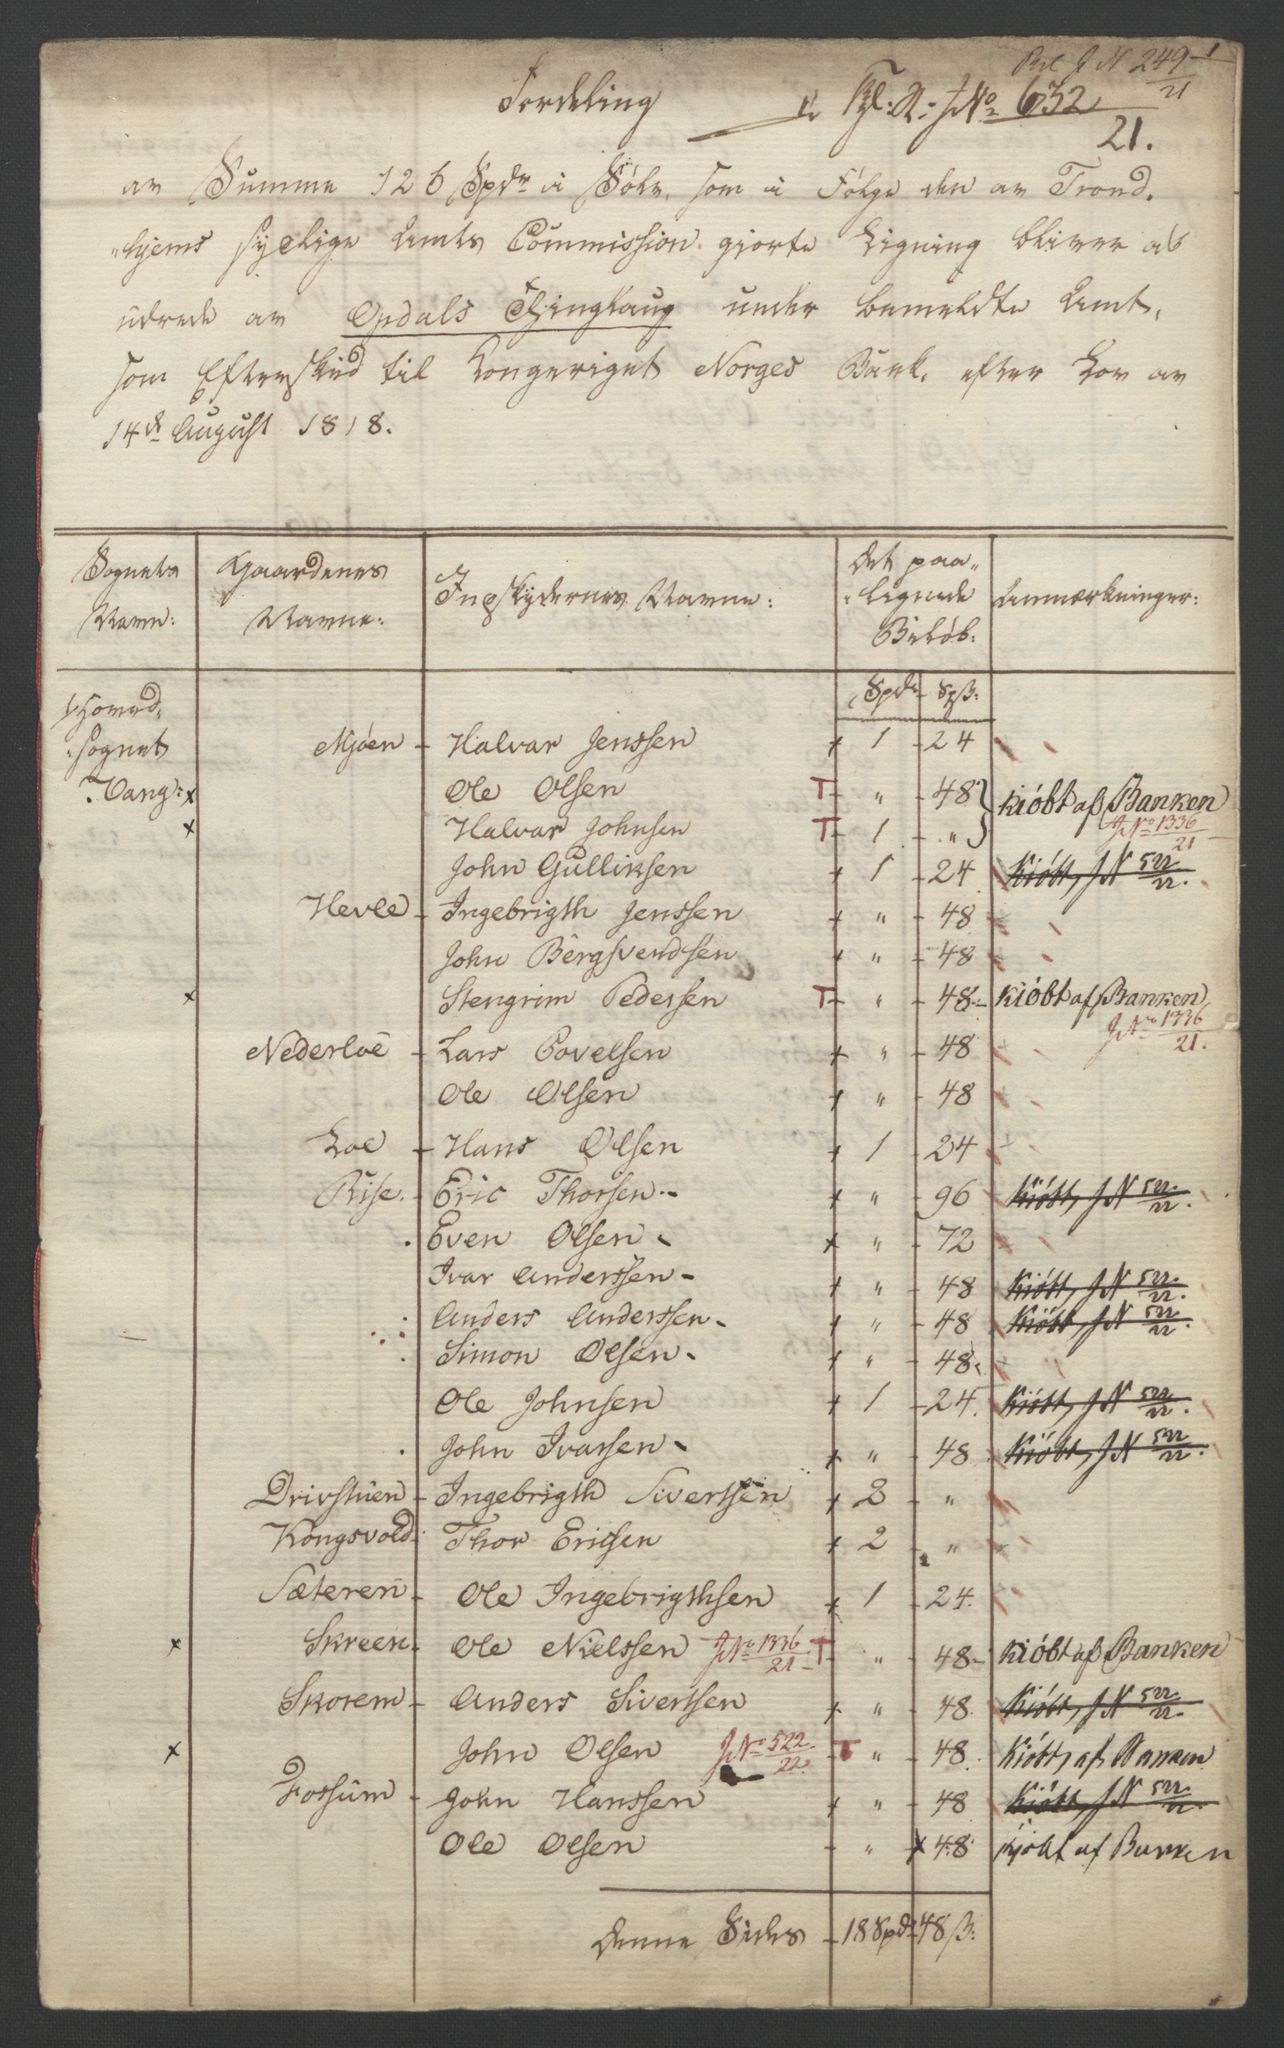 Fordeling
Rvl J N 249/21 1
K: A: J No 632/21.
av Summa 126 Spdr i Sølv, som i Følge den av Trond-
hjems sydlige Amts Commission gjorte Ligning bliver at
udrede av Opdals Thinglaug under bemeldte Amt,
som Efterskud til Kongeriget Norges Bank, efter Lov av
14de August 1818.
Sognets Navn: Gaardenes Navne: Indskydernes Navne: Det paalignede Beløb: Anmærkninger:
Spdr Spß:
Hoved-
sognet
Vang:
Mjøen - Halvar Jenssen + 1 - 24
x Ole Olsen T - " - 48 } Kiöbt af Banken
x Halvar Johnsen T - 1 - " } J No 1336/21
John Gulliksen + 1 - 24 Kiöbt, J N 522/22.
Hevle - Ingebrigth Jenssen + " - 48
John Bergsvendsen + " - 48
x Stengrim Pedersen T - " - 48 - Kiöbt af Banken
J No 1336/21.
Nederloe - Lars Povelsen + " - 48
Ole Olsen + " - 48
Loe - Hans Olsen + 1 - 24
Rise - Eric Thorsen - + " - 96 Kiöbt, J N 522/22.
Even Olsen - + " - 72
Ivar Anderssen - + " - 48 Kiöbt, J N 522/22.
Anders Anderssen - + " - 48 Kiöbt, J N 522/22.
Simon Olsen - + " - 48
Ole Johnsen + 1 - 24 Kiöbt, J N 522/22.
John Ivarsen - + " - 48 Kiöbt, J N 522/22.
Drivstuen - Ingebrigth Sivertsen + 2 - "
Kongsvold - Thor Ericsen + 2 - "
Sæteren - Ole Ingebrigthsen + 1 - 24
x Skreen - Ole Nielssen J No 1336/21 T - " - 48 - Kiöbt af Banken
Skorem - Anders Sivertsen + " - 48 Kiöbt, J N 522/22.
x John Olsen J No 522/22 T " - 48 Kiöbt, af Banken
Fossum - John Hanssen + " - 48 Kiöbt, J N 522/22.
Ole Olsen - " x 48 Kjöbt af Banken
Denne Sides - 18 Spdr 48 ß: